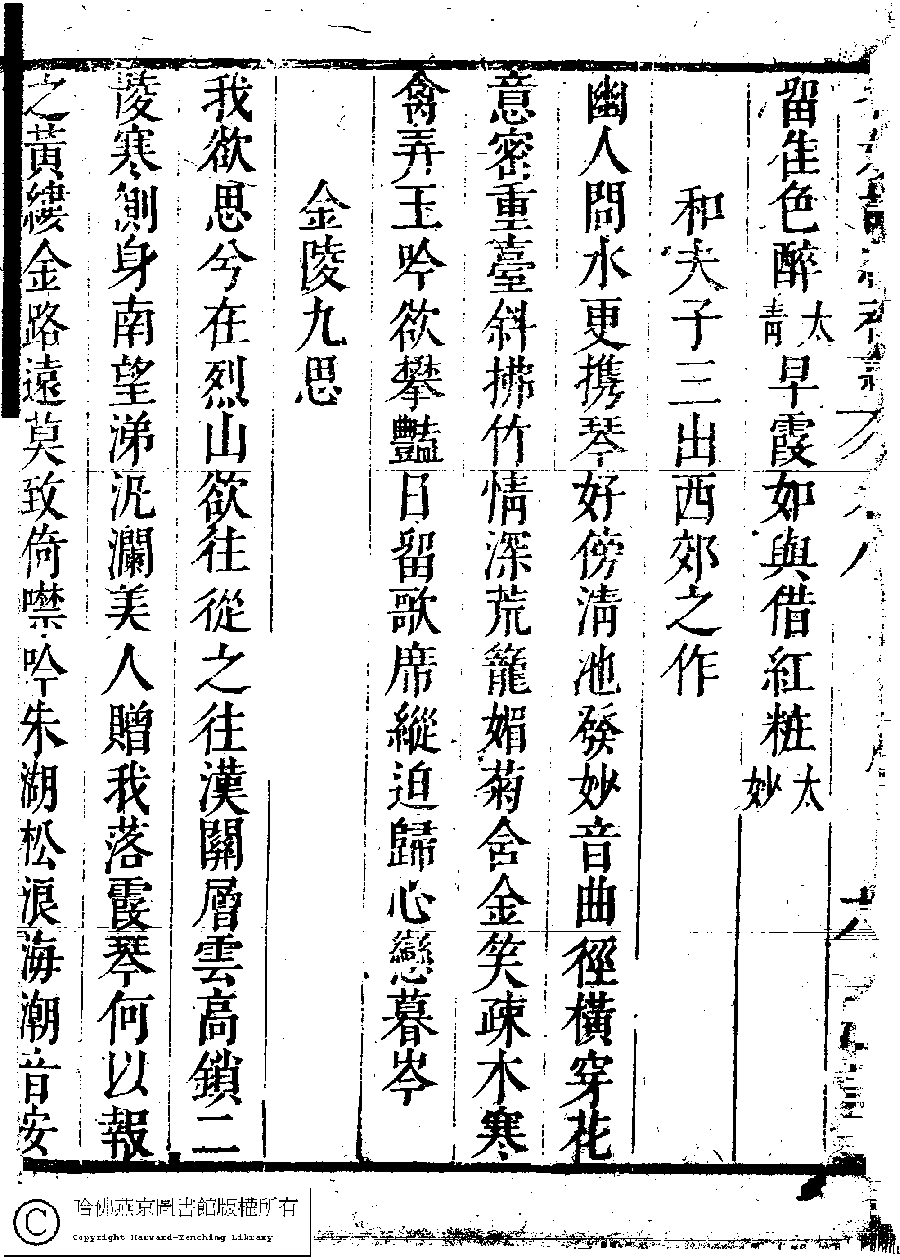 留隹色醉太青早霞如與借紅粧太妙
和夫子三出西郊之作
幽人問水更携琴好傍清池發妙音曲徑橫穿花
意密重臺斜拂竹情深荒籠媚菊含金笑疎木寒
禽弄玉吟欲攀豔日留歌席縱迫歸心戀暮岑
金陵九思
我欲思兮在烈山欲往從之往漢關層雲高鎖二
陵寒側身南望涕汍瀾美人贈我落霞琴何以報
之黃縷金路遠莫致倚噤吟朱湖松浪海潮音安
哈佛燕京圖書館版權所有
Copyright Harvard-Yenching Library